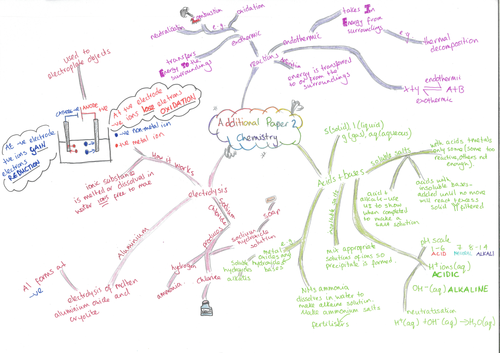 Additional Paper 2
Chemistry
reactions
exothermic
neutralisation
Combustion
oxidation
transfers
Energy To the
surroundings
endothermic
takes In
Energy from
surroundings
e.g.
thermal
decomposition
energy is transferred
to or from the
surroundings
X+Y
A+B
endothermic
exothermic
Acids + bases
s(solid), l(liquid)
g(gas), aq(aqueous)
soluble salts
with acids + metals
only some (some too
reactive, others not
enough)
acids with
insoluble bases-
added until no more
will react + excess
solid filtered
acid +
alkali - use
UI to show
when completed
to make a
salt solution
mix appropriate
solutions of ions so
precipitate is formed.
pH scale
1-6 7 8-14
ACID NEUTRAL ALKALI
H+ ions (aq)
ACIDIC
OH- (aq) ALKALINE
neutralisation
H+(aq) + OH-(aq) → H2O(aq)
NH3 ammonia
dissolves in water to
make alkaline solution.
Make ammonium salts
fertilisers
metal
bases
soluble hydroxides
alkalis
electrolysis
how it works
ionic substance
is melted or dissolved in
water ions free to move
used to
electroplate objects
At +ve electrode
-ve ions lose electrons
OXIDATION
At -ve electrode
+ve ions GAIN
electrons
REDUCTION
ANODE +ve
non metal ion
metal ion
Aluminium
Al forms at
-ve
electrolysis of molten
aluminium oxide and
cryolite
sodium
chloride
products
sodium
hydroxide
solution
soap
hydrogen
ammonia
chlorine